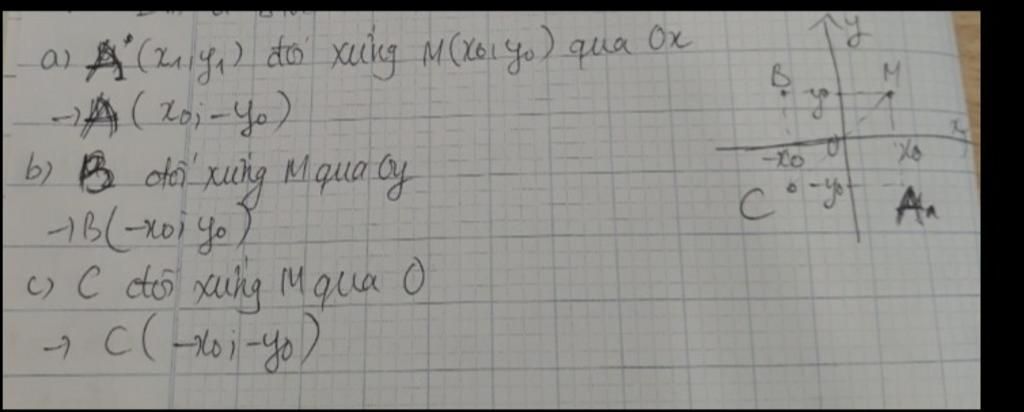 a) A (x₁; y₁) đối xứng M(x₀; y₀) qua Ox
→ A (x₀; -y₀)
b) B đối xứng M qua Oy
→ B(-x₀; y₀)
c) C đối xứng M qua O
→ C(-x₀; -y₀)
y
B y₀ M
-x₀ O x₀ x
C -y₀ A